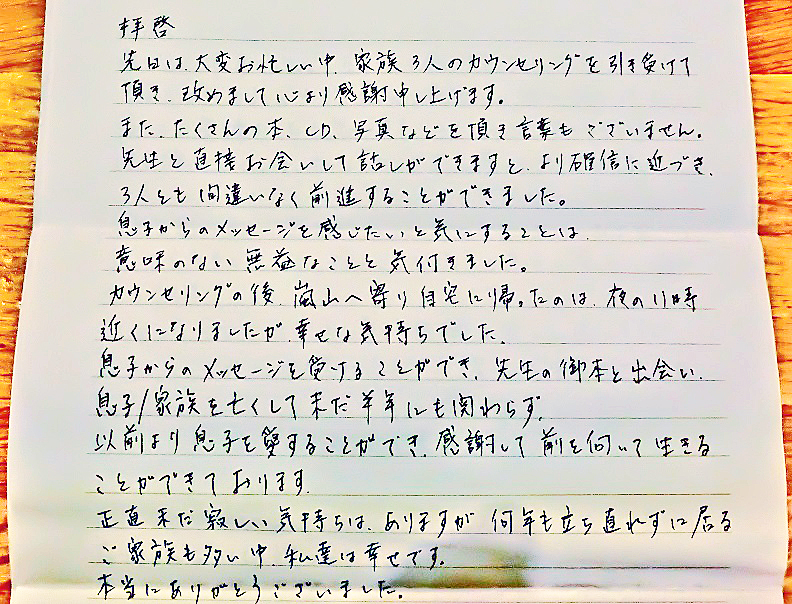 拝啓
先日は、大変お忙しい中、家族3人のカウンセリングを引き受けて
頂き、改めまして心より感謝申し上げます。
また、たくさんの本、CD、写真などを頂き言葉もございません。
先生と直接お会いして話しができますと、より確信に近づき、
3人とも間違いなく前進することができました。
息子からのメッセージを感じたいと気にすることは、
意味のない無益なことと気付きました。
カウンセリングの後、嵐山へ寄り自宅に帰ったのは、夜の11時
近くになりましたが、幸せな気持ちでした。
息子からのメッセージを受けることができ、先生の御本と出会い、
息子/家族を亡くして未だ半年にも関わらず、
以前より息子を愛することができ、感謝して前を向いて生きる
ことができております。
正直未だ寂しい気持ちは、ありますが何年も立ち直れずに居る
ご家族も多い中、私達は幸せです。
本当にありがとうございました。